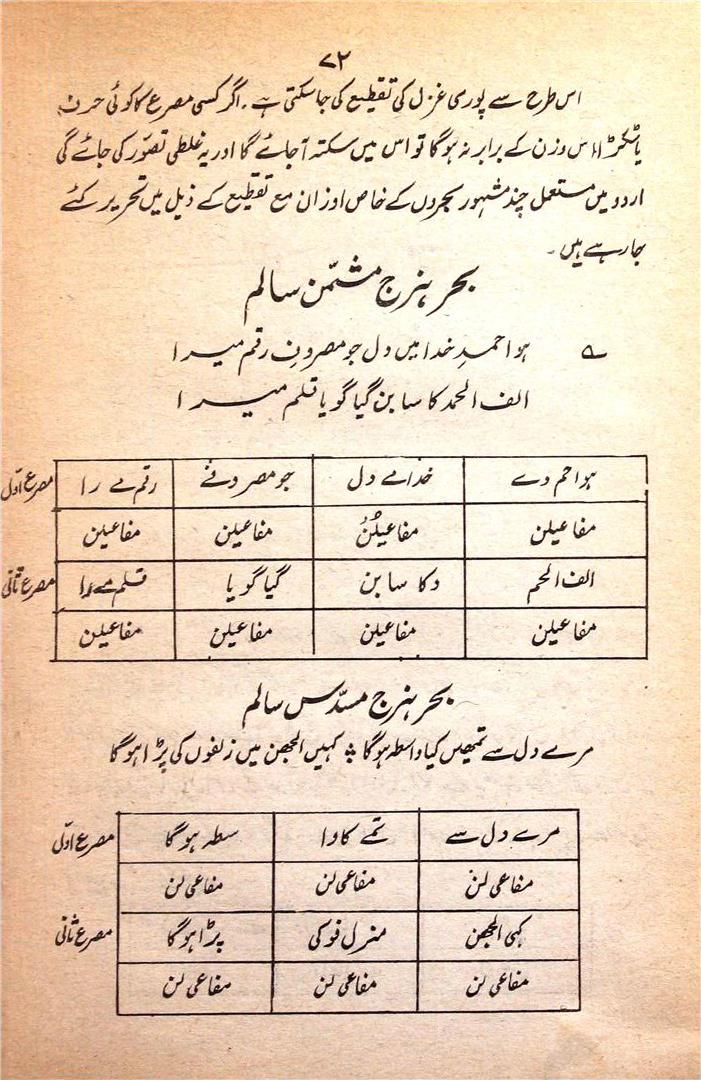 ۷۲
اس طرح سے پوری غزل کی تقطیع کی جاسکتی ہے۔ اگر کسی مصرع کا کوئی حرف
یا ٹکڑا اس وزن کے برابر نہ ہوگا تو اس میں سکتہ آجائے گا اور یہ غلطی تصوّر کی جائے گی
اردو میں مستعمل چند مشہور بحروں کے خاص اوزان مع تقطیع کے ذیل میں تحریر کئے
جارہے ہیں۔
بحر ہزج مثمّن سالم
ہوا حمدِ خدا میں دل جو مصروفِ رقم میرا
الف الحمد کا سا بن گیا گویا قلم میرا
مصرع اوّل ہوا حم دے خدا مے دل جو مصروفے رقم مے را
مفاعیلن مفاعیلُنْ مفاعیلن مفاعیلن
مصرع ثانی الف الحم دکا سا بن گیا گویا قلم مے را
مفاعیلن مفاعیلن مفاعیلن مفاعیلن
بحر ہزج مسدّس سالم
مرے دل سے تمھیں کیا واسطہ ہوگا ؞ کہیں الجھن میں زلفوں کی پڑا ہوگا
مصرع اوّل مرے دل سے تمے کا وا سطہ ہوگا
مفاعی لن مفاعی لن مفاعی لن
مصرع ثانی کہی الجھن مزل فو کی پڑا ہوگا
مفاعی لن مفاعی لن مفاعی لن